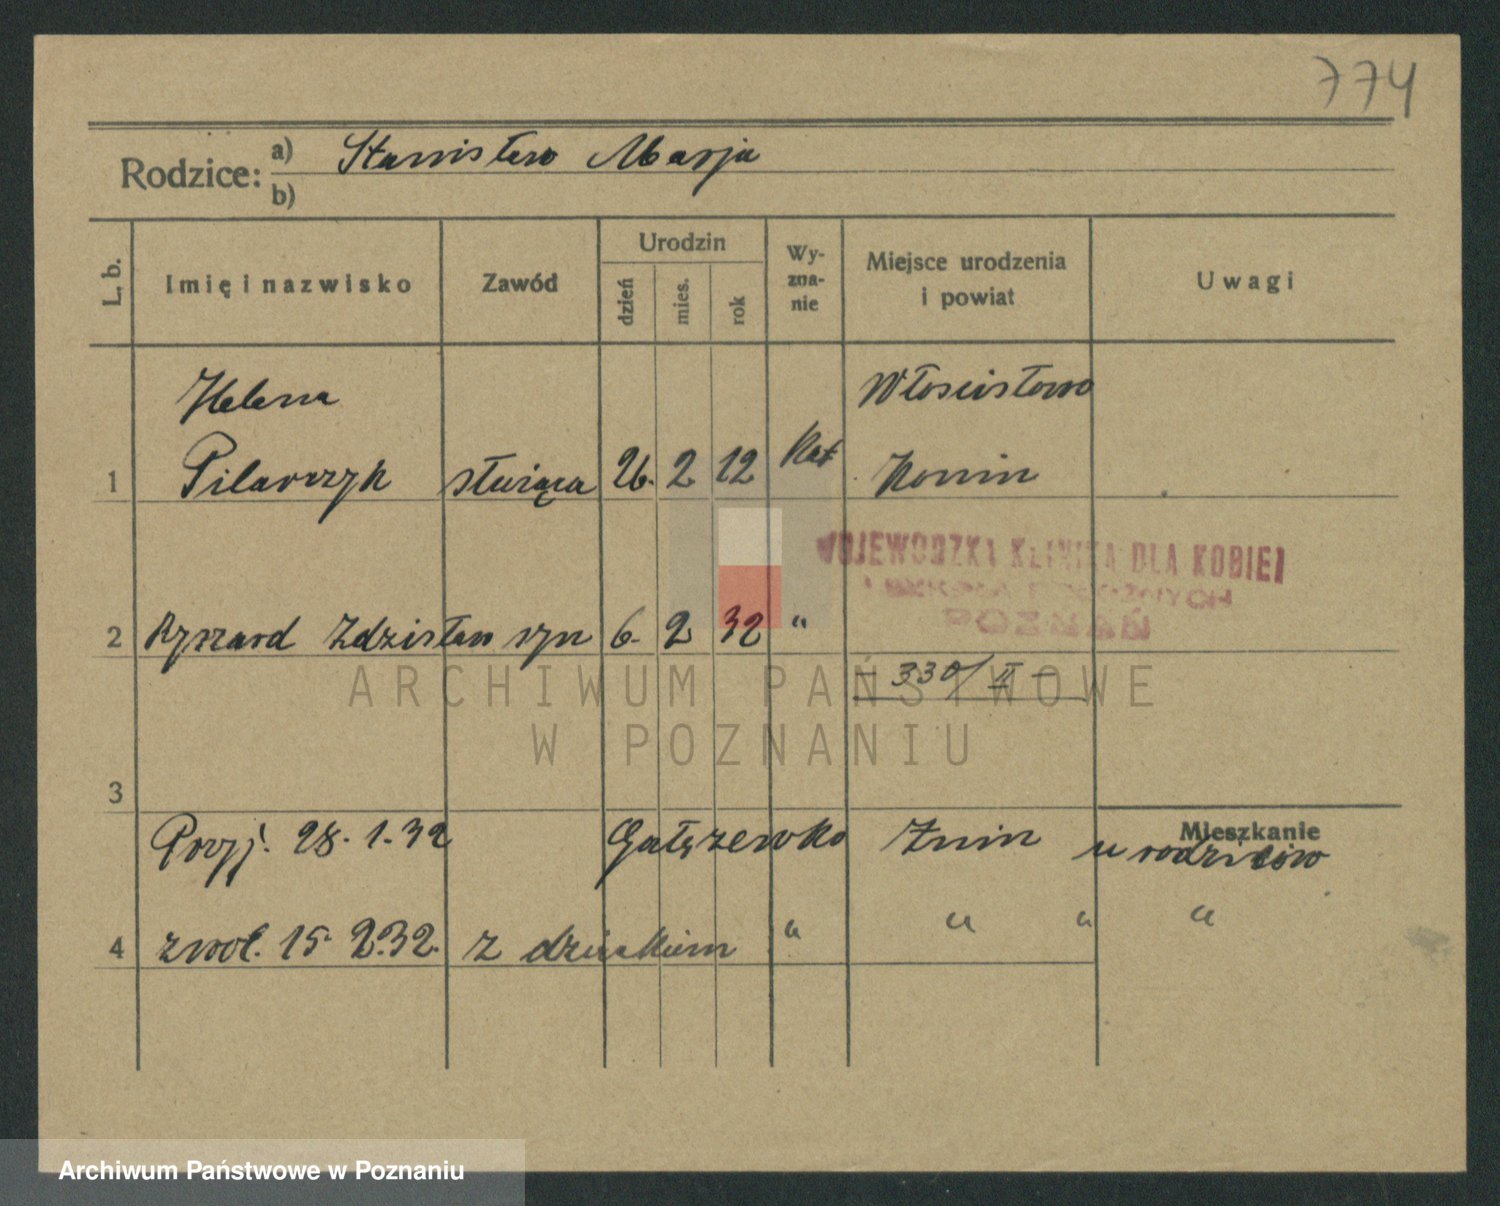 774
Rodzice: a) Stanisław Marja
b)
L. b. Imię i nazwisko Zawód Urodzin dzień mies. rok Wy-zna-nie Miejsce urodzenia i powiat Uwagi
Helena Włościstowo
1 Pilarczyk służąca 26. 2 12 Kat Konin
WOJEWODZKA KLINIKA DLA KOBIET
POZNAŃ
2 Ryszard Zdzisław syn 6. 2 32 "
– 330/II –
ARCHIWUM PAŃSTWOWE
W POZNANIU
3
Mieszkanie
Przyj. 28. 1. 32 Gałęzewko Żnin u rodziców
4 zwol. 15. 2. 32. z dzieckiem " " " "
Archiwum Państwowe w Poznaniu